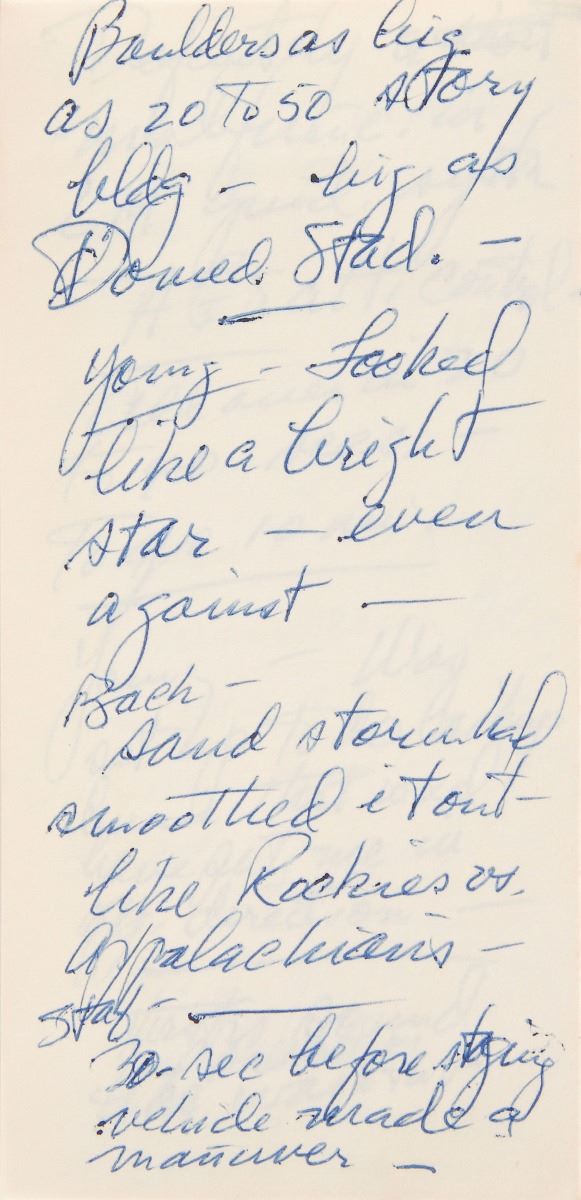 Boulders as big
as 20 To 50 story
bldg - big as
Domed Stad. -
Young - Looked
like a bright
star - even
against -
Back -
sand storm had
smoothed it out -
like Rockies vs.
Appalachians -
Staf -
30 sec before staging
vehicle made a
manuver -